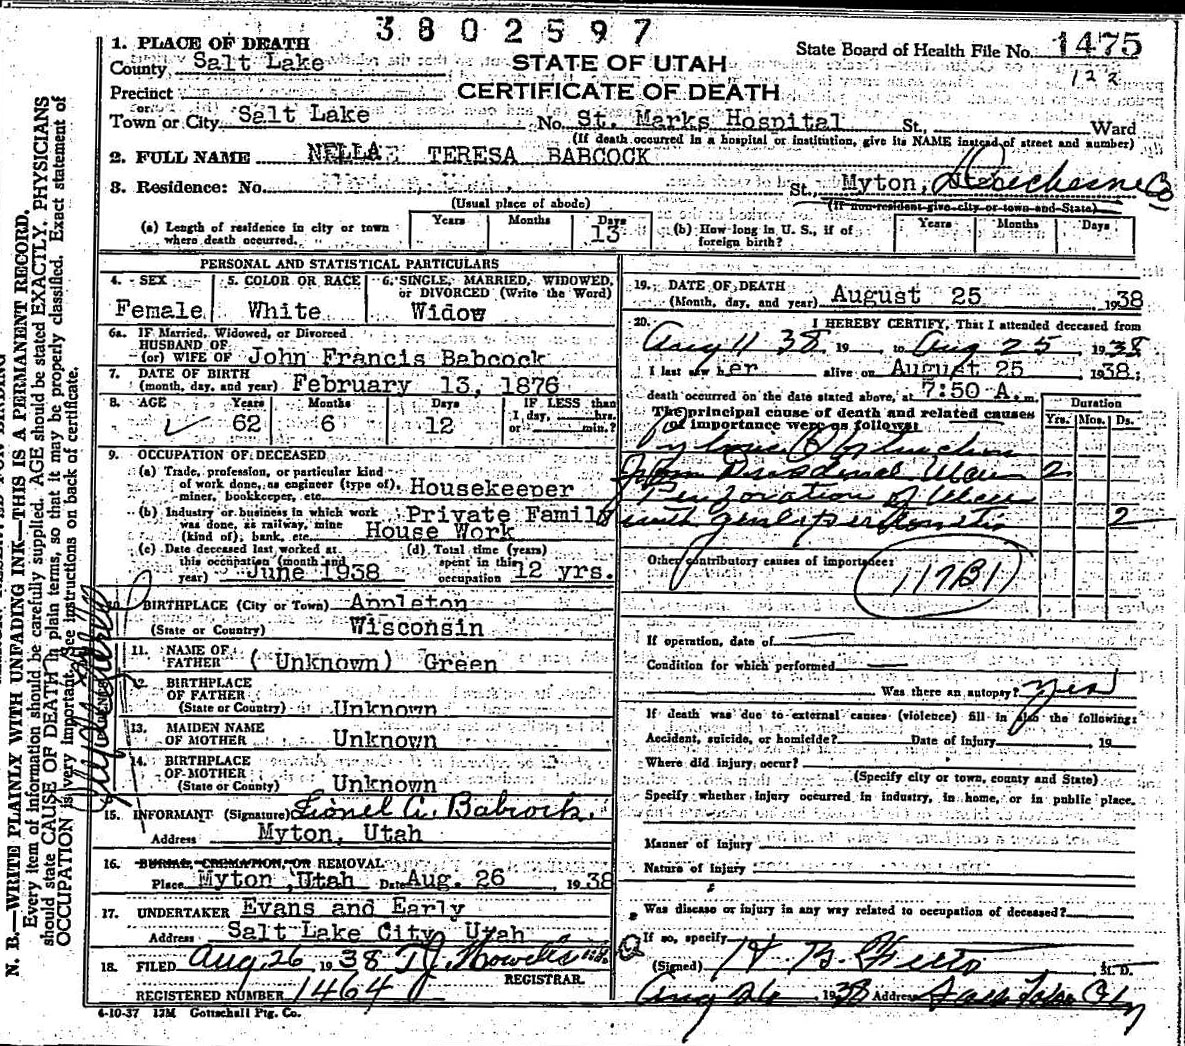 3802597
1. PLACE OF DEATH
State Board of Health File No. 1475
County Salt Lake
STATE OF UTAH
122
Precinct
CERTIFICATE OF DEATH
or
Town or City Salt Lake No. St. Marks Hospital St., Ward
(If death occurred in a hospital or institution, give its NAME instead of street and number)
2. FULL NAME NELLAE TERESA BABCOCK
3. Residence: No. St., Myton, Duchesne Co
(Usual place of abode)
(If non-resident give city or town and State)
(a) Length of residence in city or town where death occurred.
Years Months Days
13
(b) How long in U. S., if of foreign birth?
Years Months Days
PERSONAL AND STATISTICAL PARTICULARS
4. SEX
Female
5. COLOR OR RACE
White
6. SINGLE, MARRIED, WIDOWED, or DIVORCED (Write the Word)
Widow
6a. IF Married, Widowed, or Divorced
HUSBAND OF
(or) WIFE OF John Francis Babcock
7. DATE OF BIRTH
(month, day, and year) February 13, 1876
8. AGE Years Months Days IF LESS than
1 day, hrs.
or min.?
62 6 12
9. OCCUPATION OF DECEASED
(a) Trade, profession, or particular kind
of work done, as engineer (type of), Housekeeper
miner, bookkeeper, etc.
(b) Industry or business in which work Private Family
was done, as railway, mine
(kind of), bank, etc. House Work
(c) Date deceased last worked at
this occupation (month and
year) June 1938
(d) Total time (years)
spent in this
occupation 12 yrs.
10. BIRTHPLACE (City or Town) Appleton
(State or Country) Wisconsin
11. NAME OF
FATHER (Unknown) Green
12. BIRTHPLACE
OF FATHER
(State or Country) Unknown
13. MAIDEN NAME
OF MOTHER Unknown
14. BIRTHPLACE
OF MOTHER
(State or Country) Unknown
15. INFORMANT (Signature) Lionel A. Babcock.
Address Myton, Utah
16. BURIAL, CREMATION, OR REMOVAL
Place Myton, Utah Date Aug. 26, 1938
17. UNDERTAKER Evans and Early
Address Salt Lake City, Utah
18. FILED Aug 26 1938 T J Howells
REGISTRAR.
REGISTERED NUMBER 1464
4-10-37 12M Gottschall Ptg. Co.
19. DATE OF DEATH
(Month, day, and year) August 25 1938
20. I HEREBY CERTIFY, That I attended deceased from
Aug 11 38 19 to Aug 25, 1938
I last saw her alive on August 25 1938;
death occurred on the date stated above, at 7:50 A. m.
The principal cause of death and related causes
of importance were as follows:
Duration
Yrs. Mos. Ds.
Pyloric Obstruction
from Duodenal Ulcer 2
Perforation of Ulcer
with genl peritonitis 2
Other contributory causes of importance:
117B1
If operation, date of
Condition for which performed
Was there an autopsy? yes
If death was due to external causes (violence) fill in also the following:
Accident, suicide, or homicide? Date of injury 19
Where did injury occur?
(Specify city or town, county and State)
Specify whether injury occurred in industry, in home, or in public place.
Manner of injury
Nature of injury
Was disease or injury in any way related to occupation of deceased?
If so, specify
(Signed) H. B. M. D.
Aug 26 1938 Address Salt Lake City
N. B.—WRITE PLAINLY WITH UNFADING INK—THIS IS A PERMANENT RECORD.
Every item of information should be carefully supplied. AGE should be stated EXACTLY. PHYSICIANS
should state CAUSE OF DEATH in plain terms, so that it may be properly classified. Exact statement of
OCCUPATION is very important. See instructions on back of certificate.